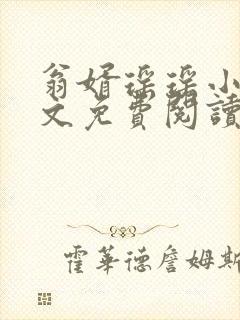 翁婿瑶瑶小
文免費閱讀
霍華德詹姆斯